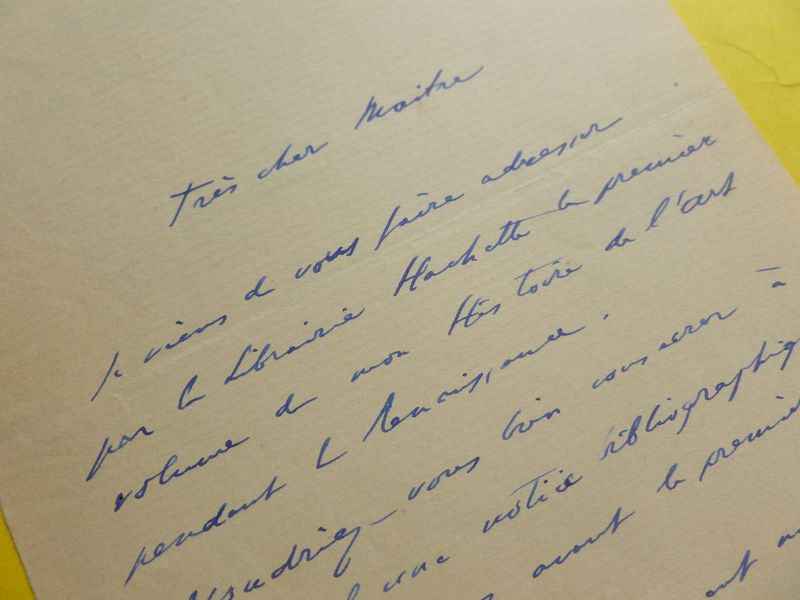 Très cher Maitre
Je viens de vous faire adresser
par la Librairie Hachette le premier
volume de mon Histoire de l'art
pendant la Renaissance.
Voudriez-vous bien consacrer à
une notice bibliographiq
avant le premie